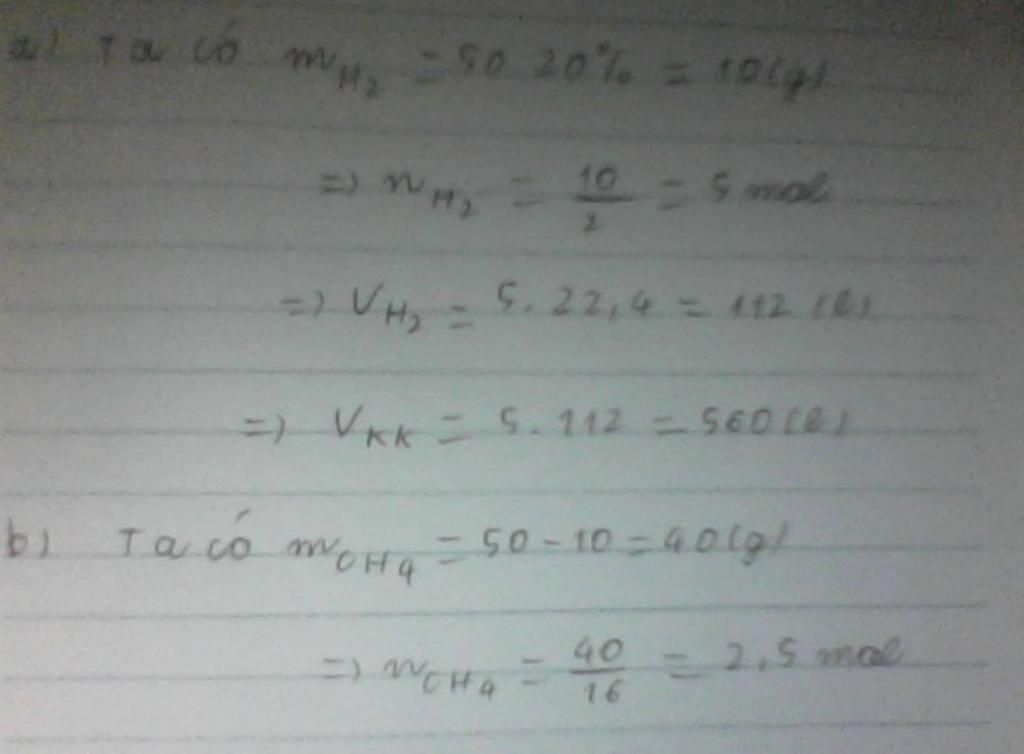 a) Ta có mH₂ = 50 20% = 10(g)
=) nH₂ = 10/2 = 5 mol
=) VH₂ = 5.22,4 = 112 (l)
=) VKK = 5.112 = 560(l)
b) Ta có mCH₄ = 50-10 = 40(g)
=) nCH₄ = 40/16 = 2,5 mol